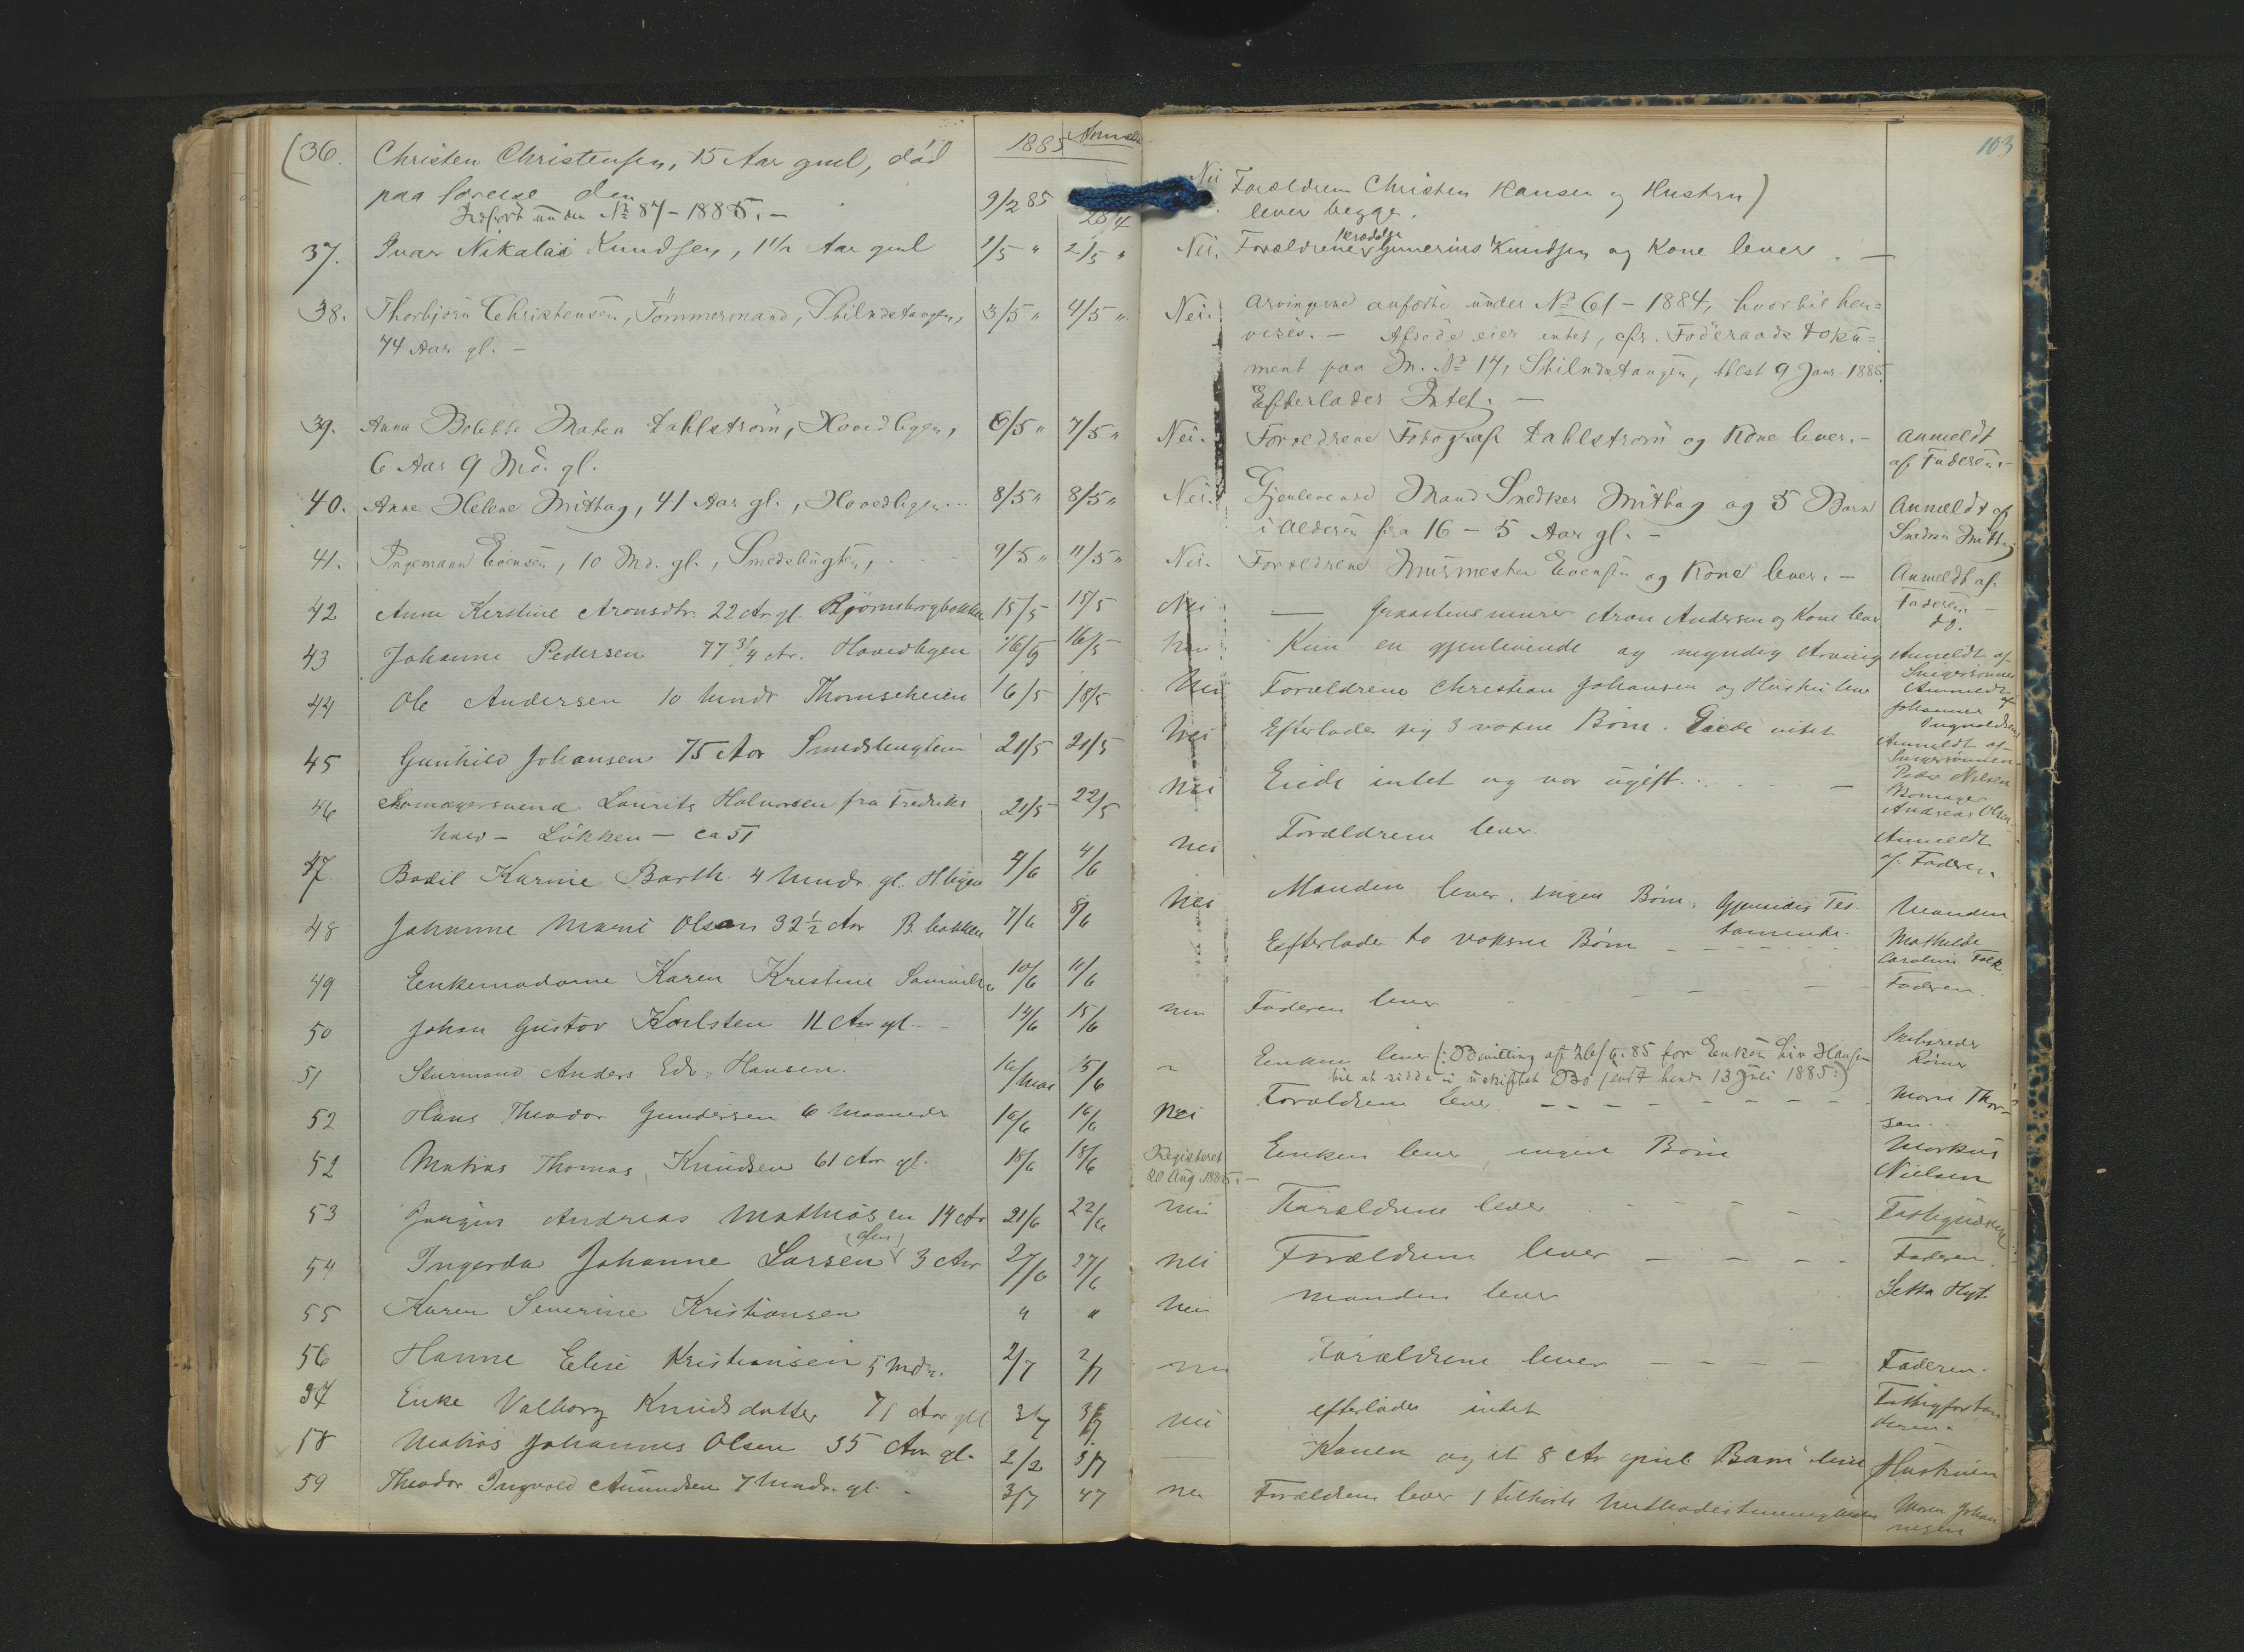 103
1885 Anmeldt
(36. Christen Christensen, 15 Aar gml, død 9/2 85 28/4 Nei Forældrene Christen Hansen og Hustru)
paa søreise den lever begge.
Indført under No 87-1885. -
37. Ivar Nikolai Knudsen, 1 1/2 Aar gml 1/5 " 2/5 " Nei. Forældrene Skrædder Gunerius Knudsen og Kone lever. -
38. Thorbjörn Christensen, Tömmermand, Stilnestangen, 3/5 " 4/5 " Nei. Arvingerne anførte under No 61 - 1884, hvortil hen=
74 Aar gl. - vises. - Afdøde eier intet, cfr. Föderaads Doku=
ment paa M. No 17, Stilnestangen, thlst 9 Janr. 1885.
Efterlader Intet. -
39. Anna Bolette Matea Dahlström, Hovedligen, 6/5 " 7/5 " Nei. Forældrene Fotograf Dahlström og Kone lever. - Anmeldt
6 Aar 9 Md. gl. af Faderen. -
40. Anne Helene Mittag, 41 Aar gl., Hovedligen... 8/5 " 8/5 " Nei. Gjenlevende Mand Snedker Mittag og 5 Børn Anmeldt af
i Alderen fra 16 - 5 Aar gl. - Snedker Mittag
41. Ingemann Evensen, 10 Md. gl., Smedsbugten, 9/5 " 11/5 " Nei. Forældrene Murmester Evensen og Kone lever. - Anmeldt af
Faderen -
42 Anne Kerstine Aronsdtr. 22 Ar gl. Bjørneborgbakken 15/5 15/5 Nei - Graastensmurer Aron Andersen og Kone lever do.
43 Johanne Pedersen 77 3/4 Ar. Hovedligen 16/5 16/5 Nei Kun en gjenlevende og myndig Arving Anmeldt af
Svigersønnen
44 Ole Andersen 10 Mndr Thomseheien 16/5 18/5 Nei Forældrene Christian Johansen og Hustru lever Anmeldt af
Johannes
Ingvoldsen
45 Gunhild Johansen 75 Aar Smedsbugten 21/5 21/5 Nei Efterlader sig 3 voxne Børn. Eiede intet Anmeldt af
Svigersønnen
Peder Nilsen
46 Skomagersvend Laurits Halvorsen fra Fredriks 21/5 22/5 Nei Eiede intet og var ugift. . . - Skomager
hald - Løkken - ca 51 Andreas Olsen
47 Bodil Karine Barth. 4 Mndr. gl. H.ligen 4/6 4/6 Nei Forældrene lever. Anmeldt
af Faderen
48 Johanne Marie Olsen 32 1/2 Ar B. bakken 7/6 8/6 Nei Manden lever, ingen Børn. Gjensidig Tes- Manden
tamente.
49 Enkemadame Karen Kristine Samuelsen 10/6 11/6 Efterlader to voksne Børn - - - - - Mathilde
Caroline Falk
50 Johan Gustav Karlsten 11 Aar gl. - 14/6 15/6 nei Faderen lever - - - - Faderen.
51 Styrmand Anders Edv. Hansen. 15/6 " Enken lever (: Bevilling af 26/6.85 for Enken Liv Hansen Skibsreder
til at sidde i uskiftet Bo sendt hende 13 Juli 1885:)
52 Hans Theodor Gundersen 6 Maaneder 16/6 16/6 Nei Forældrene lever. - - - - - - - Morn Thor-
sen
52 Matias Thomas Knudsen 61 Aar gl. 18/6 18/6 Registeret Enken lever, ingen Børn Markus
20 Aug. 1885. - Nielsen
53 Jørgen Andreas Mathiasen 14 Ar 21/6 22/6 Nei Forældrene lever - - -
54 Ingerda Johanne Larsen (Olsen) 3 Aar 27/6 27/6 nei Forældrene lever - - - - Faderen.
55 Karen Severine Kristiansen " " Nei Manden lever
56 Hanne Elise Kristiansen 5 Mdr. 2/7 2/7 nei Forældrene lever - - - - Faderen.
57 Enke Valborg Knudsdatter 71 Aar gl 3/7 3/7 Nei efterlader intet Fattigforstan
deren.
58 Matias Johannes Olsen 35 Aar gl. 2/2 3/7 - Konen og et 8 Ar gml Barn lever Hustruen
59 Theodor Ingvald Amundsen 7 Mndr. gl. 3/7 4/7 nei Forældrene lever | tilhørte Methodistmenigheden Morn Johan
nesen